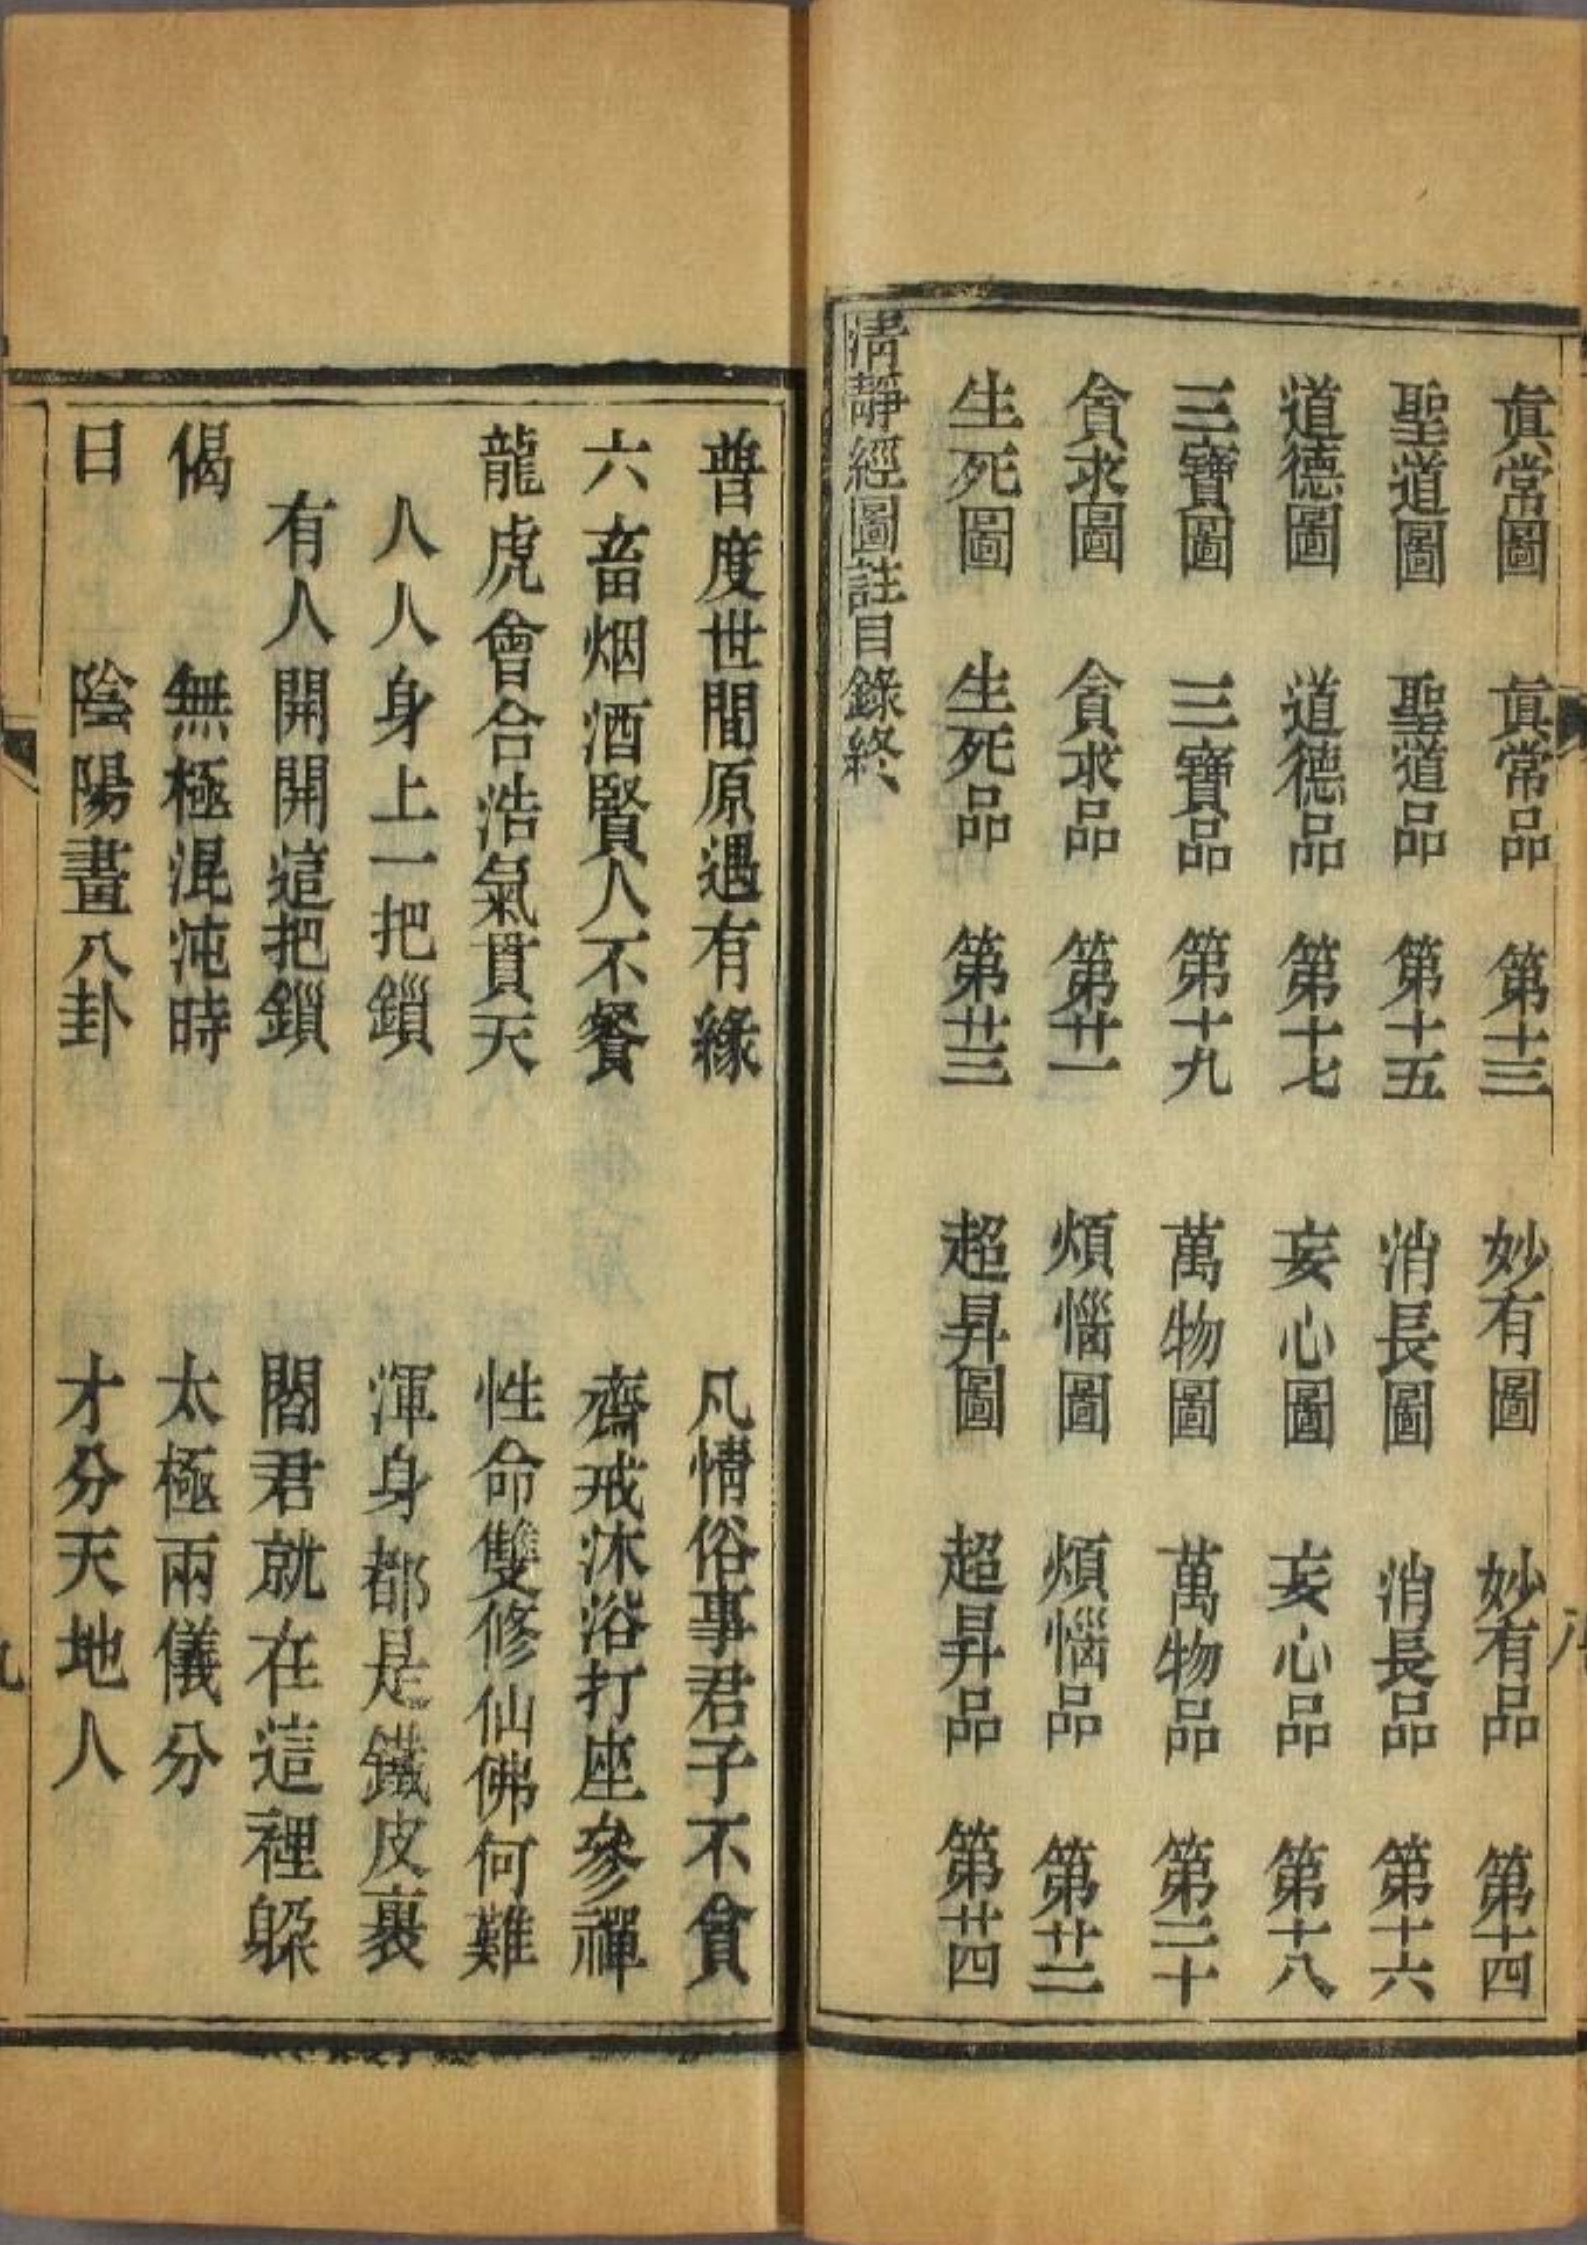 眞常圖 眞常品 第十三 妙有圖 妙有品 第十四
聖道圖 聖道品 第十五 消長圖 消長品 第十六
道德圖 道德品 第十七 妄心圖 妄心品 第十八
三寶圖 三寶品 第十九 萬物圖 萬物品 第二十
貪求圖 貪求品 第廿一 煩惱圖 煩惱品 第廿二
生死圖 生死品 第廿三 超昇圖 超昇品 第廿四
清靜經圖註目錄終
普度世間原遇有緣 凡情俗事君子不貪
六畜烟酒賢人不餐 齋戒沐浴打座參禪
龍虎會合浩氣貫天 性命雙修仙佛何難
人人身上一把鎖 渾身都是鐵皮裹
有人開開這把鎖 閻君就在這裡躱
偈 無極混沌時 太極兩儀分
曰 陰陽畫八卦 才分天地人